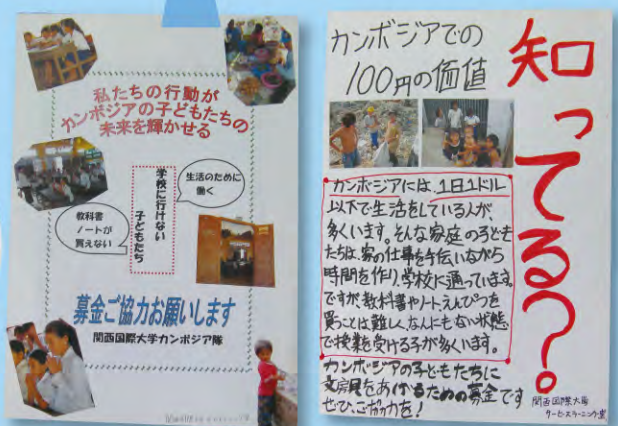 私たちの行動が
カンボジアの子どもたちの
未来を輝かせる
生活のために
働く
学校に行けない
子どもたち
教科書
ノートが
買えない
募金ご協力お願いします
関西国際大学カンボジア隊
知ってる?
カンボジアでの
100円の価値
カンボジアには、1日1ドル
以下で生活をしている人が、
多くいます。そんな家庭の子ども
たちは、家の仕事を手伝いながら
時間を作り、学校に通っています。
ですが、教科書やノート、えんぴつを
買うことは難しく、なんにもない状態
で授業を受ける子が多くいます。
カンボジアの子どもたちに
文房具をあげるための募金です
ぜひ、ご協力を!
関西国際大学
サービスラーニング室